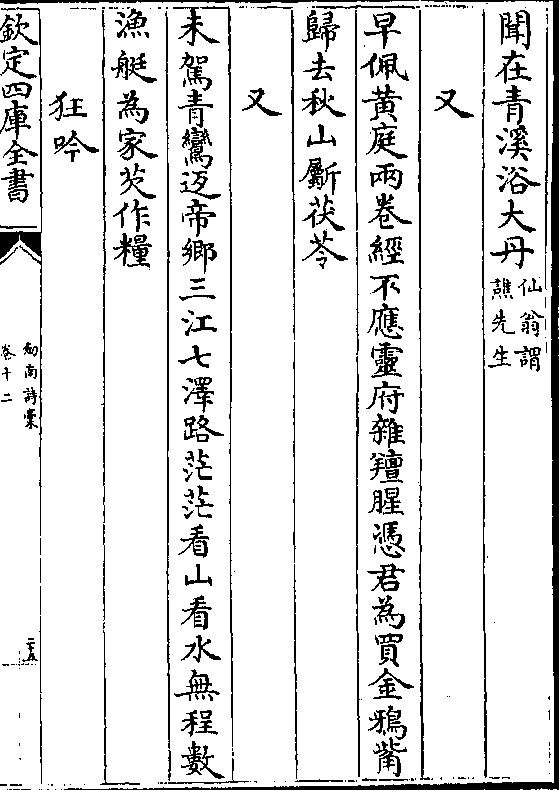 聞在青溪浴大丹仙翁謂
譙先生
又
早佩黃庭兩卷經不應靈府雜羶腥憑君為買金鴉觜
歸去秋山斸茯苓
又
未駕青鸞返帝鄉三江七澤路茫茫看山看水無程數
漁艇為家芡作糧
狂吟
欽定四庫全書
劍南詩稾
卷十二
二十五